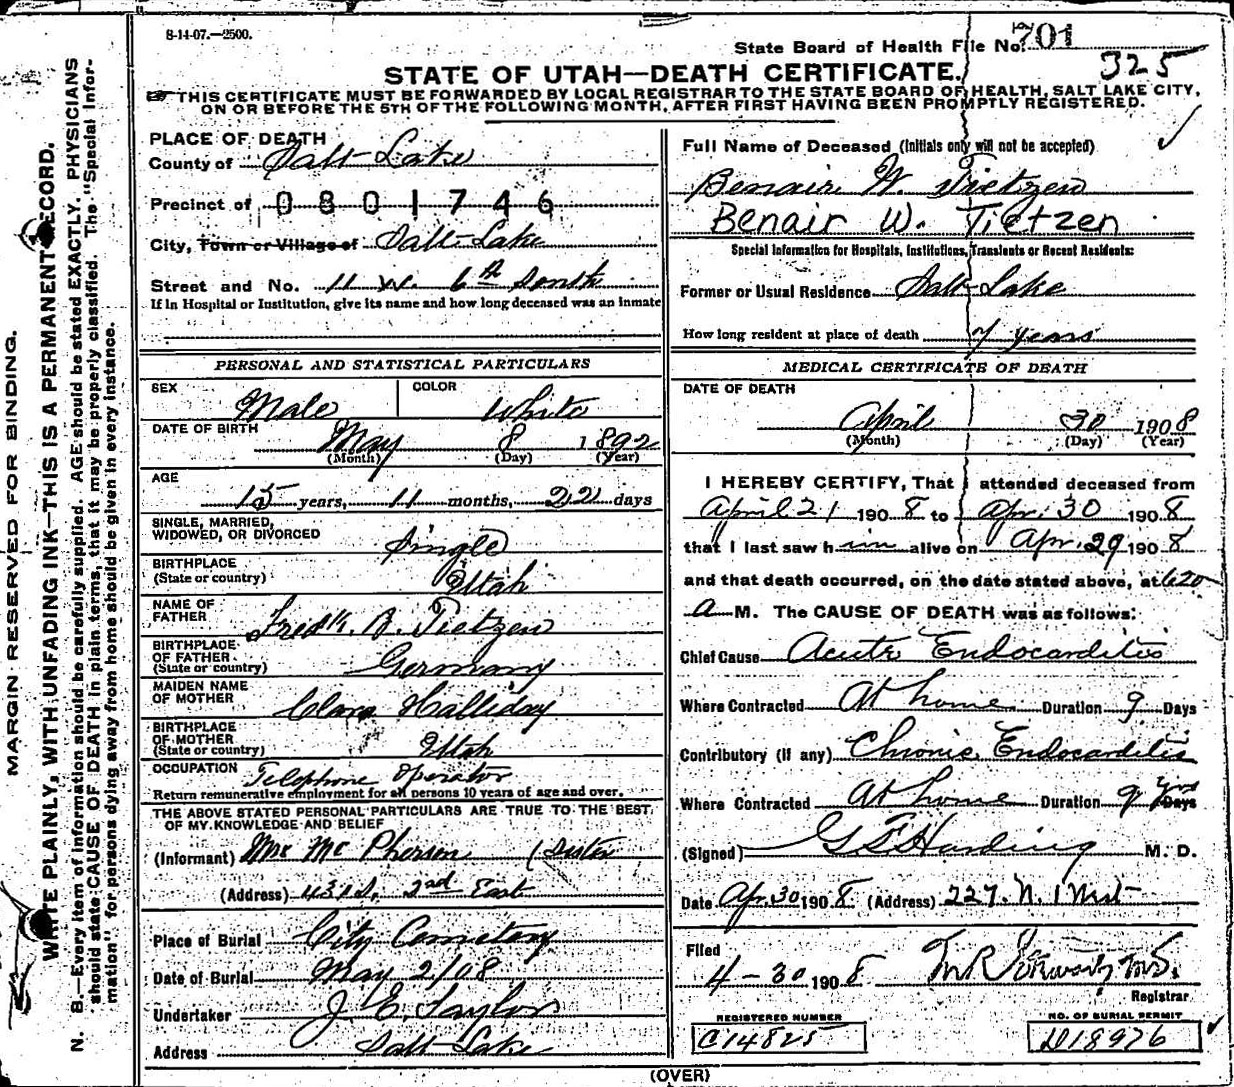 8-14-07.—2500.
State Board of Health File No. 701
325
STATE OF UTAH—DEATH CERTIFICATE.
THIS CERTIFICATE MUST BE FORWARDED BY LOCAL REGISTRAR TO THE STATE BOARD OF HEALTH, SALT LAKE CITY,
ON OR BEFORE THE 5TH OF THE FOLLOWING MONTH, AFTER FIRST HAVING BEEN PROMPTLY REGISTERED.
MARGIN RESERVED FOR BINDING.
WRITE PLAINLY, WITH UNFADING INK—THIS IS A PERMANENT RECORD.
N. B.—Every item of information should be carefully supplied. AGE should be stated EXACTLY. PHYSICIANS
should state CAUSE OF DEATH in plain terms, that it may be properly classified. The "Special Infor-
mation" for persons dying away from home should be given in every instance.
PLACE OF DEATH
County of Salt Lake
Precinct of 0801746
City, Town or Village of Salt Lake
Street and No. 11 W. 6th South
If in Hospital or Institution, give its name and how long deceased was an inmate
PERSONAL AND STATISTICAL PARTICULARS
SEX Male COLOR White
DATE OF BIRTH May 8 1892
(Month) (Day) (Year)
AGE
15 years, 11 months, 22 days
SINGLE, MARRIED,
WIDOWED, OR DIVORCED Single
BIRTHPLACE
(State or country) Utah
NAME OF
FATHER Fredk. A. Tietzen
BIRTHPLACE
OF FATHER
(State or country) Germany
MAIDEN NAME
OF MOTHER Clara Halliday
BIRTHPLACE
OF MOTHER
(State or country) Utah
OCCUPATION Telephone Operator
Return remunerative employment for all persons 10 years of age and over.
THE ABOVE STATED PERSONAL PARTICULARS ARE TRUE TO THE BEST
OF MY KNOWLEDGE AND BELIEF
(Informant) Mrs Mc Pherson (Sister
(Address) 431 S. 2nd East
Place of Burial City Cemetery
Date of Burial May 2/08
Undertaker J. E. Taylor
Address Salt Lake
Full Name of Deceased (Initials only will not be accepted)
Benair W. Tietzen
Benair W. Tietzen
Special Information for Hospitals, Institutions, Transients or Recent Residents:
Former or Usual Residence Salt Lake
How long resident at place of death 7 years
MEDICAL CERTIFICATE OF DEATH
DATE OF DEATH
April 30 1908
(Month) (Day) (Year)
I HEREBY CERTIFY, That I attended deceased from
April 21 1908 to Apr. 30 1908
that I last saw him alive on Apr. 29 1908
and that death occurred, on the date stated above, at 620
a M. The CAUSE OF DEATH was as follows:
Chief Cause Acute Endocarditis
Where Contracted At home Duration 9 Days
Contributory (if any) Chronic Endocarditis
Where Contracted At home Duration 9 yrs Days
(Signed) G F Harding M. D.
Date Apr. 30 1908 (Address) 227. N. 1 West
Filed
4-30 1908
Registrar
REGISTERED NUMBER
C14825
NO. OF BURIAL PERMIT
D18976
(OVER)